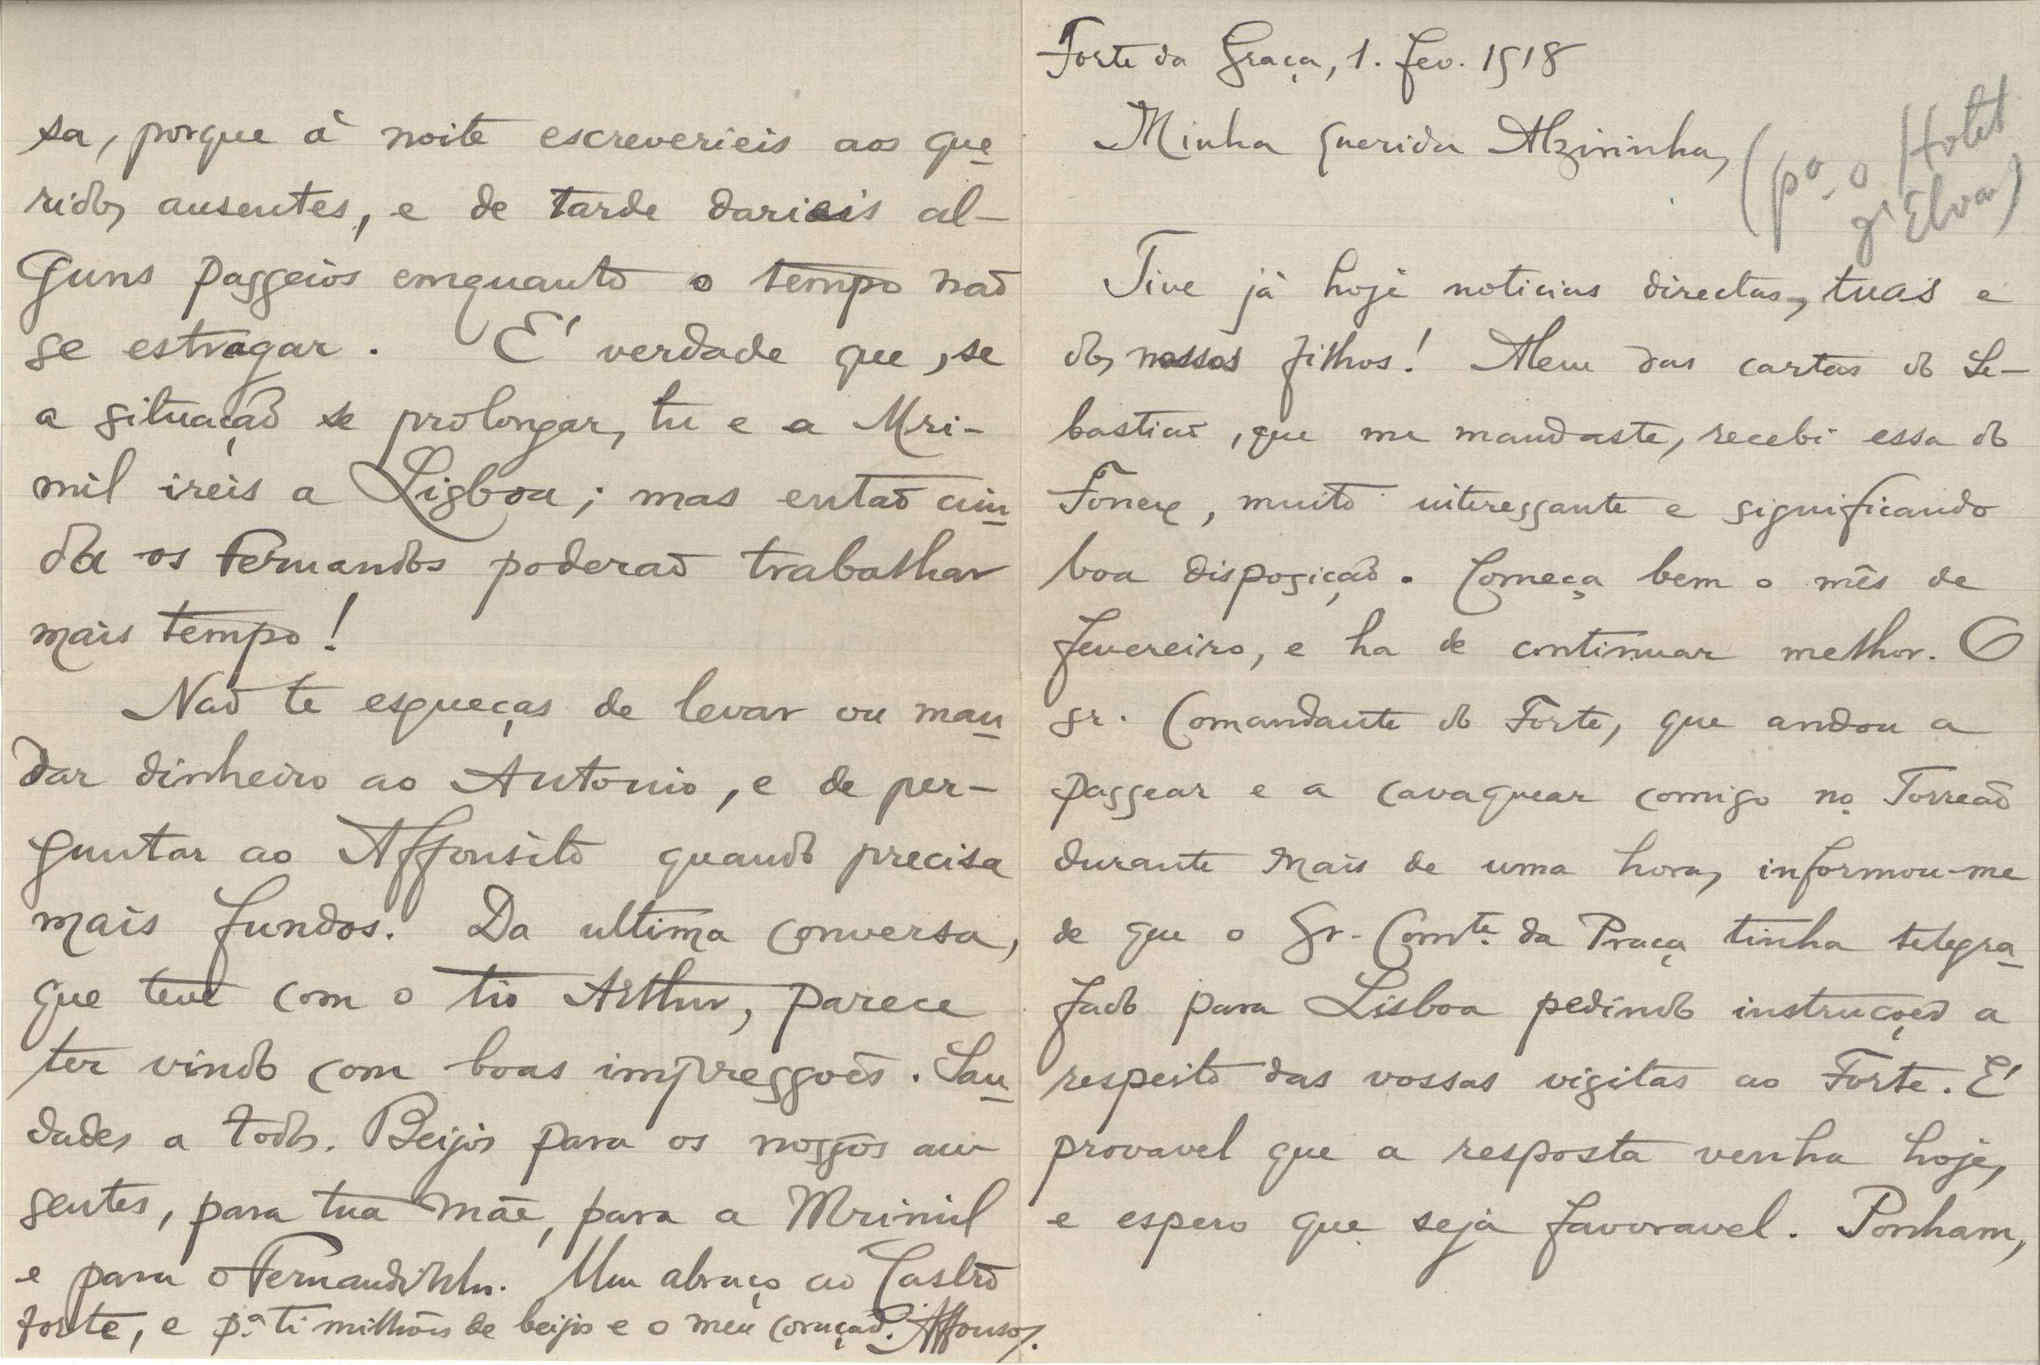 Forte da Graça, 1. fev. 1918
Minha querida Alzirinha,
(pª. o Hotel
d'Elvas)
Tive já hoje noticias directas, tuas e
dos nossos filhos! Alem das cartas do Se-
bastião, que me mandaste, recebi essa do
Fonex, muito interessante e significando
boa disposição. Começa bem o mês de
fevereiro, e ha de continuar melhor. O
sr. Comandante do Forte, que andou a
passear e a cavaquear comigo no Torreão
durante mais de uma hora, informou-me
de que o Sr. Comte. da Praça tinha telegra
fado para Lisboa pedindo instruções a
respeito das vossas visitas ao Forte. É
provavel que a resposta venha hoje,
e espero que seja favoravel. Ponham,
sa, porque á noite escreverieis aos que
ridos ausentes, e de tarde darieis al-
guns passeios emquanto o tempo não
se estragar. É verdade que, se
a situação se prolongar, tu e a Mri-
mil ireis a Lisboa; mas então ain
da os Fernandos poderão trabalhar
mais tempo!
Não te esqueças de levar ou man
dar dinheiro ao Antonio, e de per-
guntar ao Affonsito quando precisa
mais fundos. Da ultima conversa,
que teve com o tio Arthur, parece
ter vindo com boas impressões. Sau
dades a todos. Beijos para os nossos au
sentes, para tua mãe, para a Mrimil
e para o Fernandinho. Um abraço ao Castro
forte, e p.ª ti milhões de beijos e o meu coração. Affonso.